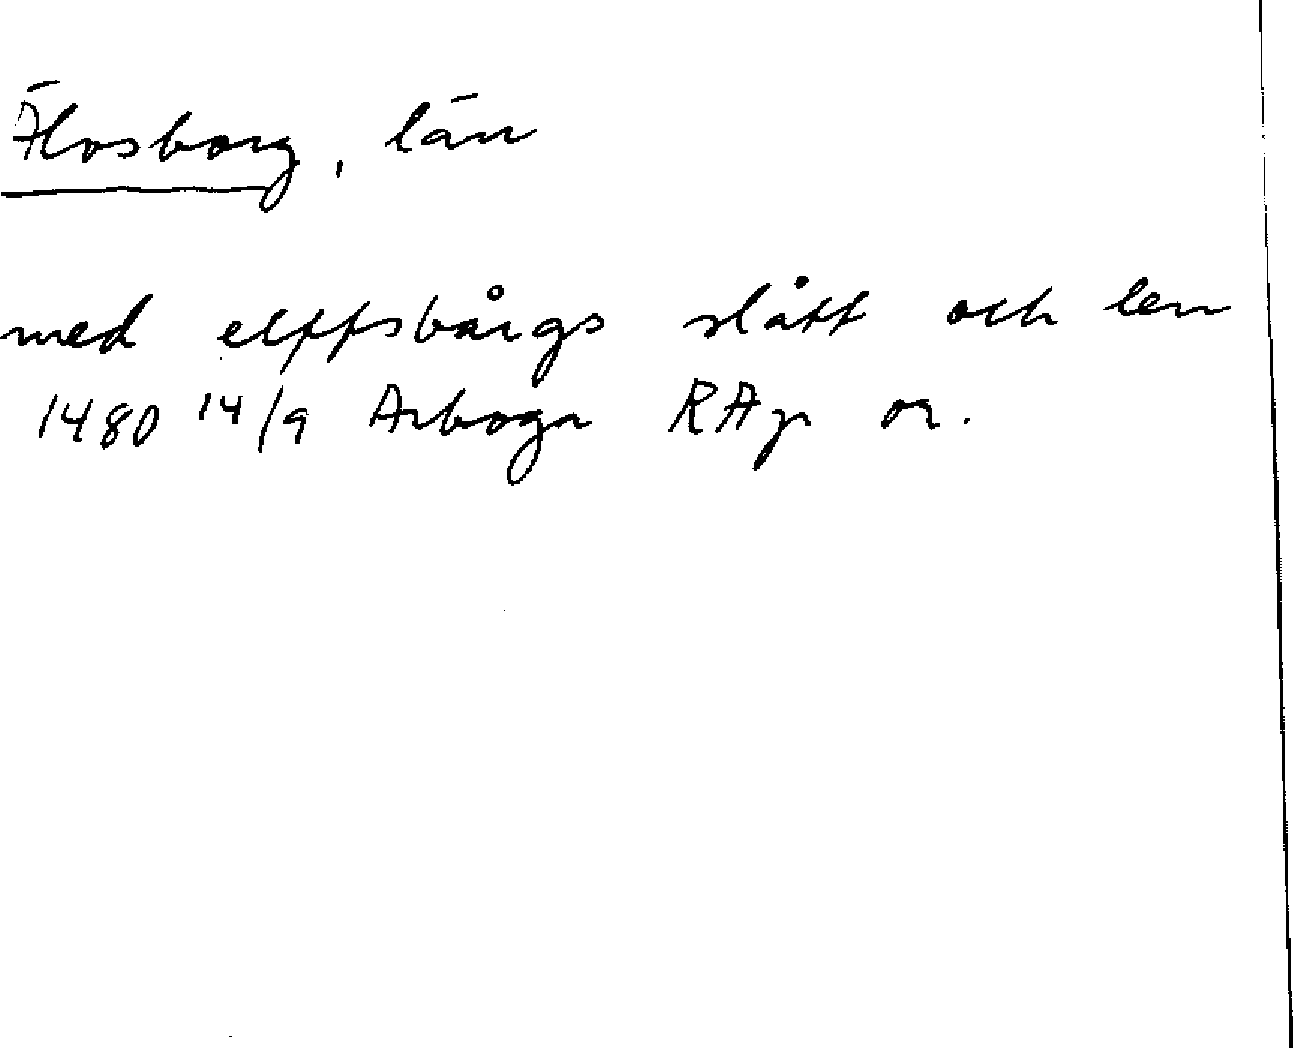 Älvsborg, län
med elffsbårgs slått och len
1480 14/9 Arboga RAp or.